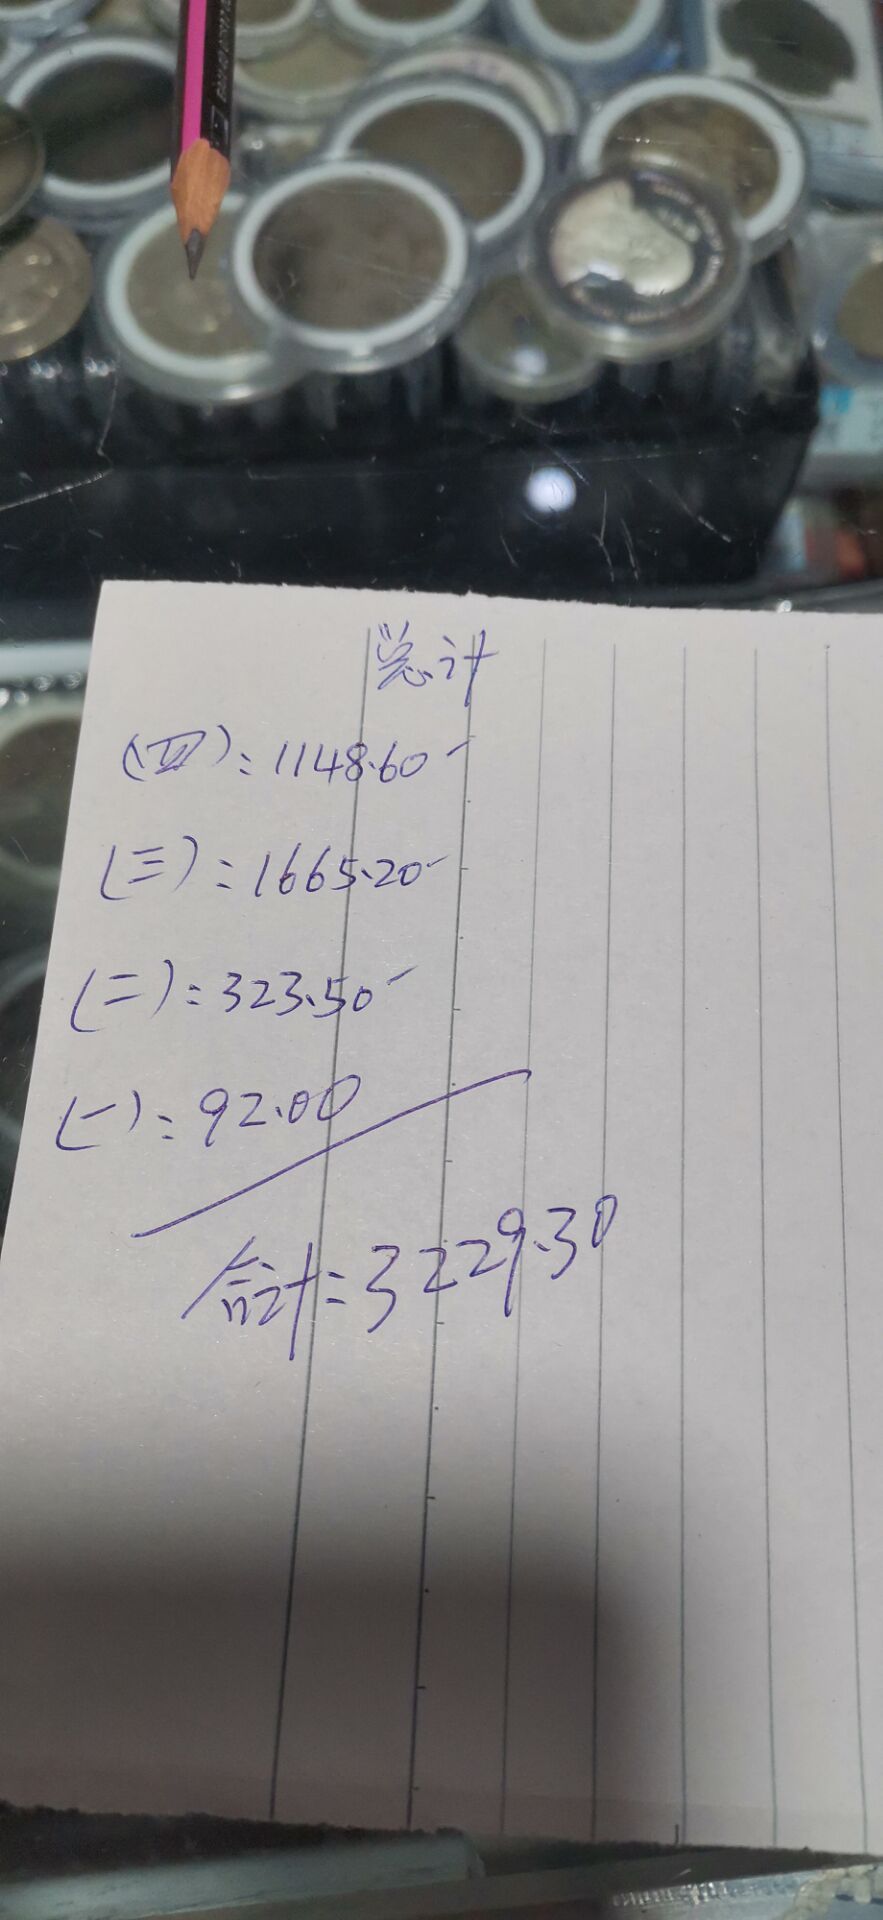 总计
(四):1148.60
(三):1665.20
(二):323.50
(一):92.00
合计:3229.30